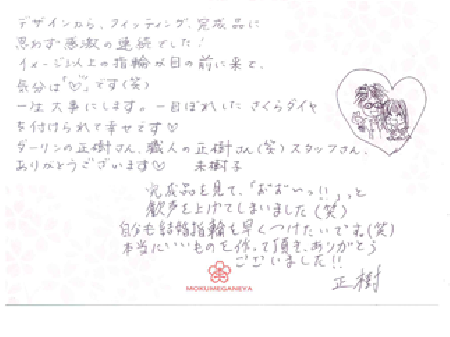 デザインから、フィッティング、完成品に
思わず感激の連続でした!
イメージ以上の指輪が目の前に来て、
気分は「♡」です(笑)
一生大事にします。一目ぼれした さくらダイヤ
を付けられて幸せです♡
ダーリンの正樹さん、職人の正樹さん(笑)スタッフさん、
ありがとうございます♡
完成品を見て、「おおいっ!!」っと
歓声を上げてしまいました(笑)
自分も結婚指輪を早くつけたいです(笑)
本当にいいものを作って頂き、ありがとう
ございました!!
正樹
MOKUMEGANEYA